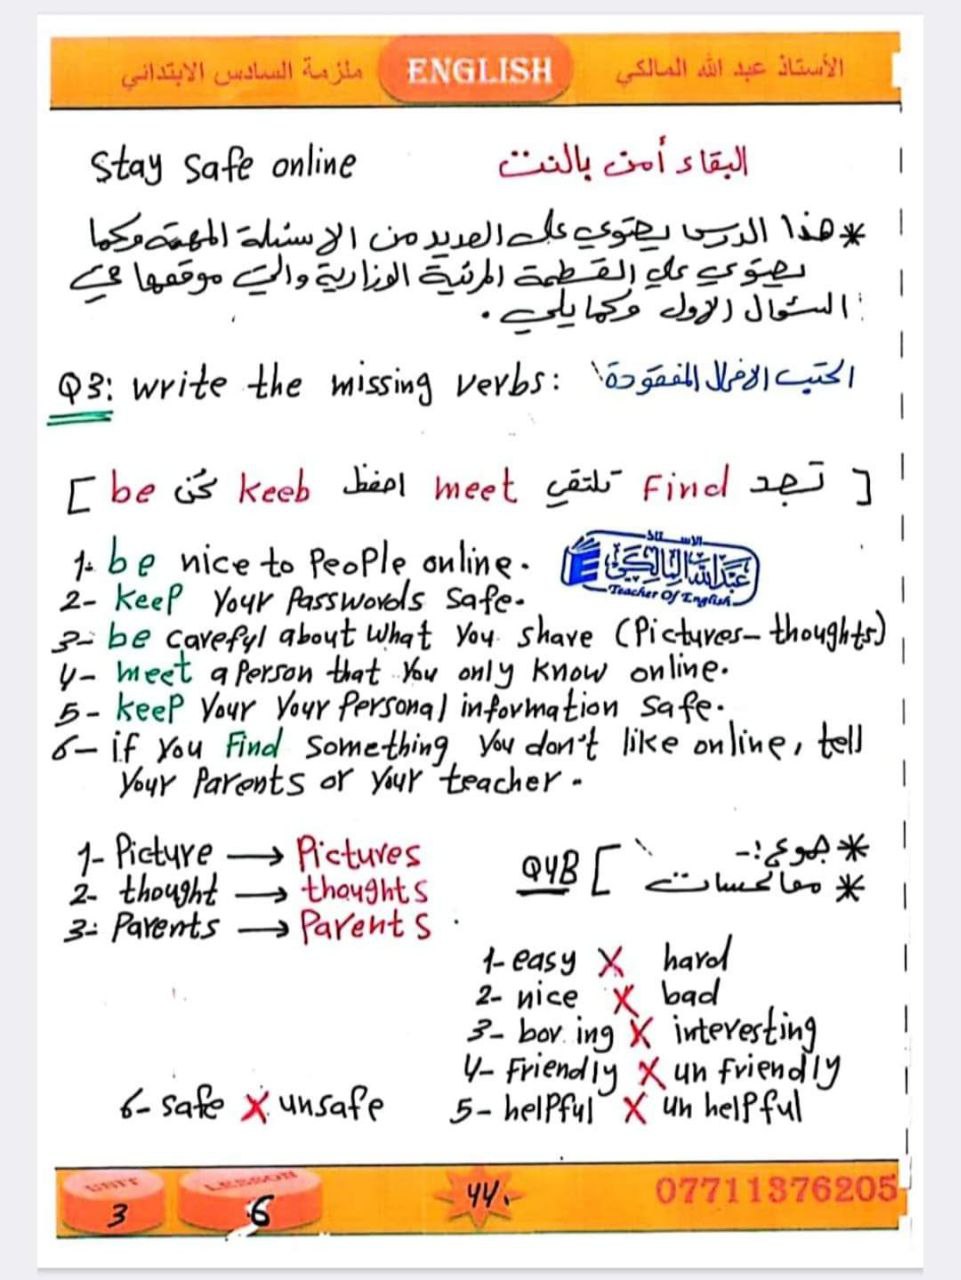 ملزمة السادس الابتدائي ENGLISH الأستاذ عبد الله المالكي
Stay safe online البقاء أمن بالنت
* هذا الدرس يحتوي على العديد من الاسئلة المهمة وكما
يحتوي على القطعة المرئية الوزارية والتي موقعها في
السؤال الاول وكما يلي.
Q3: write the missing verbs: اكتب الافعال المفقودة
[ be كن keeb احفظ meet تلتقي Find تجد ]
1- be nice to People online.
عبد الله المالكي
Teacher Of English
2- keep your Passwords safe.
3- be careful about what you share (Pictures - thoughts)
4- meet a Person that you only know online.
5- keep your your Personal information safe.
6- if you Find something you don't like online, tell
your Parents or your teacher.
* جموع:-
* معاكسات
Q4B [
1- Picture → Pictures
2- thought → thoughts
3- Parents → Parents
1- easy X hard
2- nice X bad
3- boring X interesting
4- Friendly X unfriendly
5- helpful X unhelpful
6- safe X unsafe
UNIT 3 LESSON 6 44. 07711376205